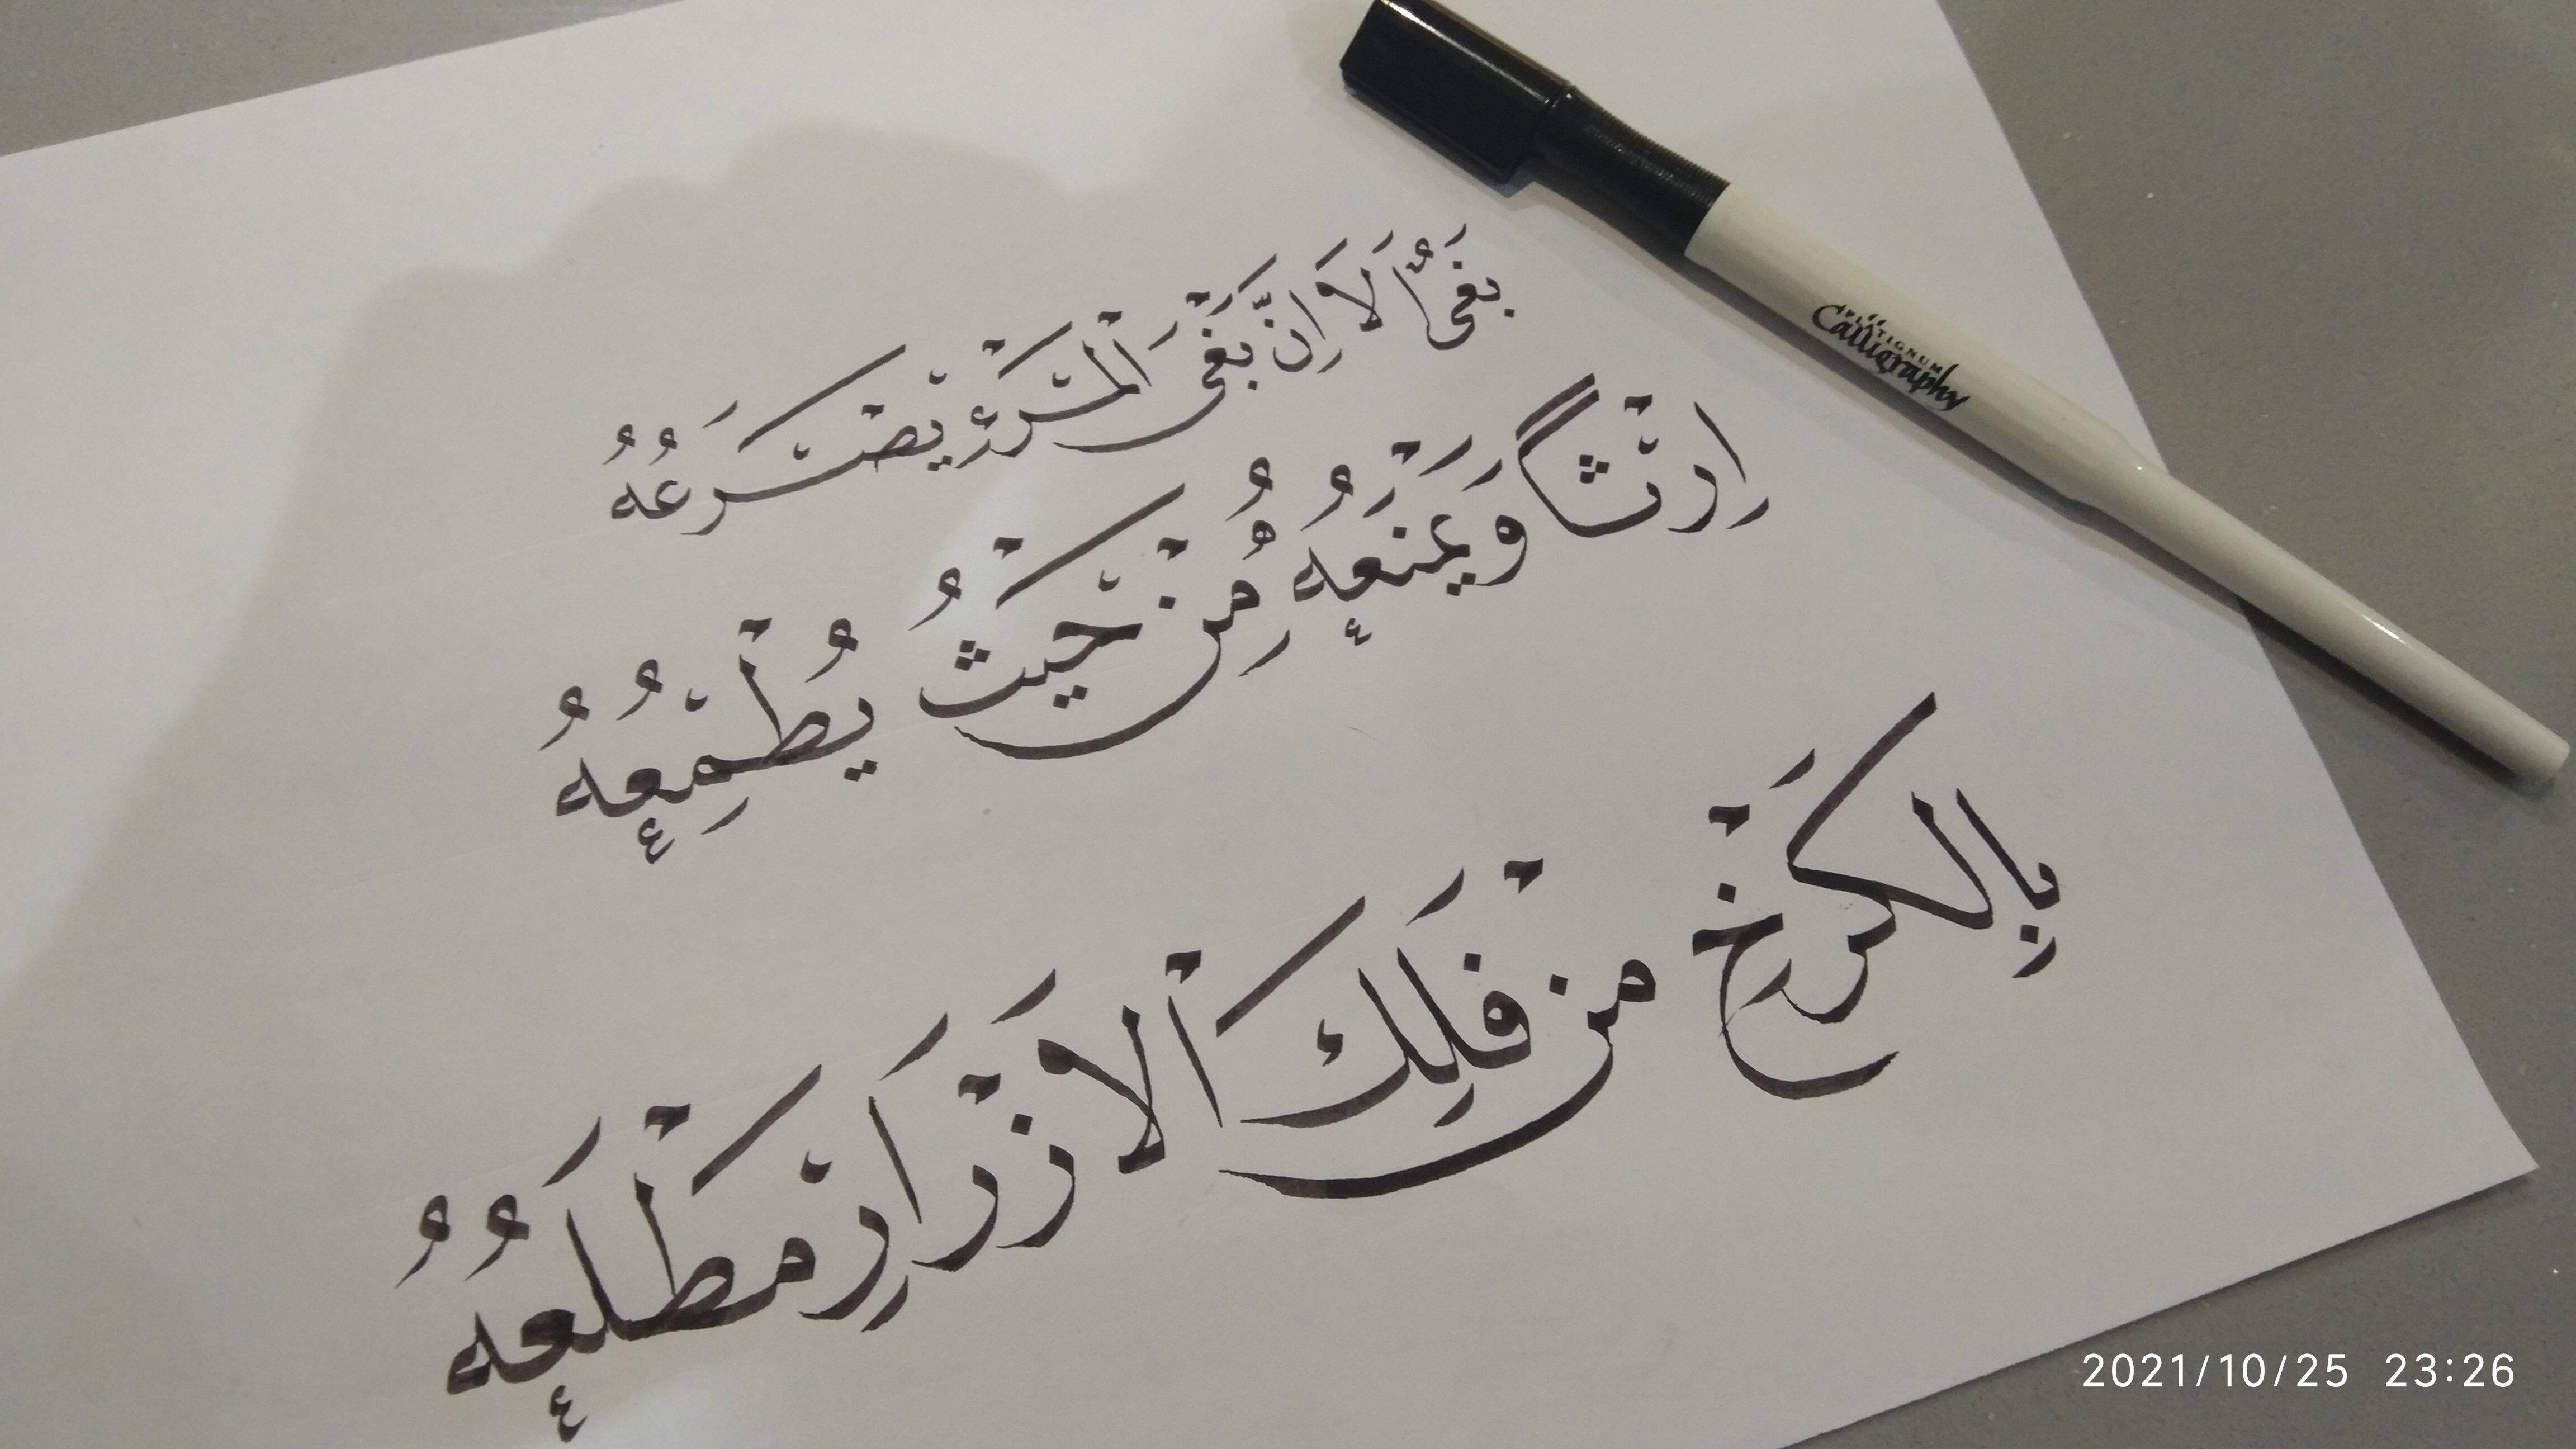 بَغْىٌ أَلَا إِنَّ بَغْىَ الْمَرْءِ يَصْرَعُهُ
إِرْثًا وَيَمْنَعُهُ مِنْ حَيْثُ يُطْمِعُهُ
بِالكَرْخِ مِنْ فَلَكِ الْأَزْرَارِ مَطْلَعُهُ
PLATIGNUM
Calligraphy
2021/10/25 23:26